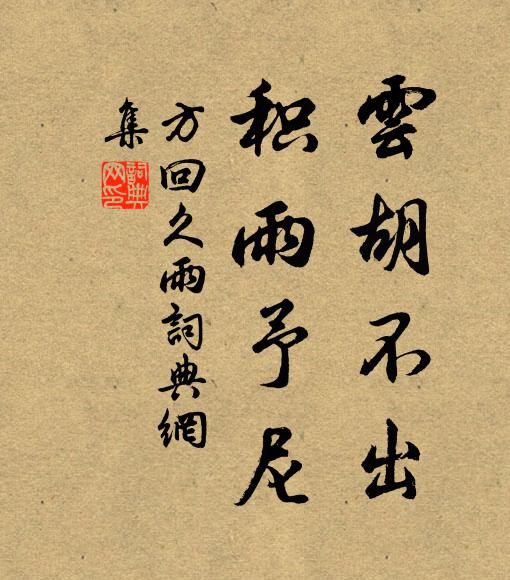 雲胡不出
积雨予尼
方回久雨詞典網
集
詞典
网印